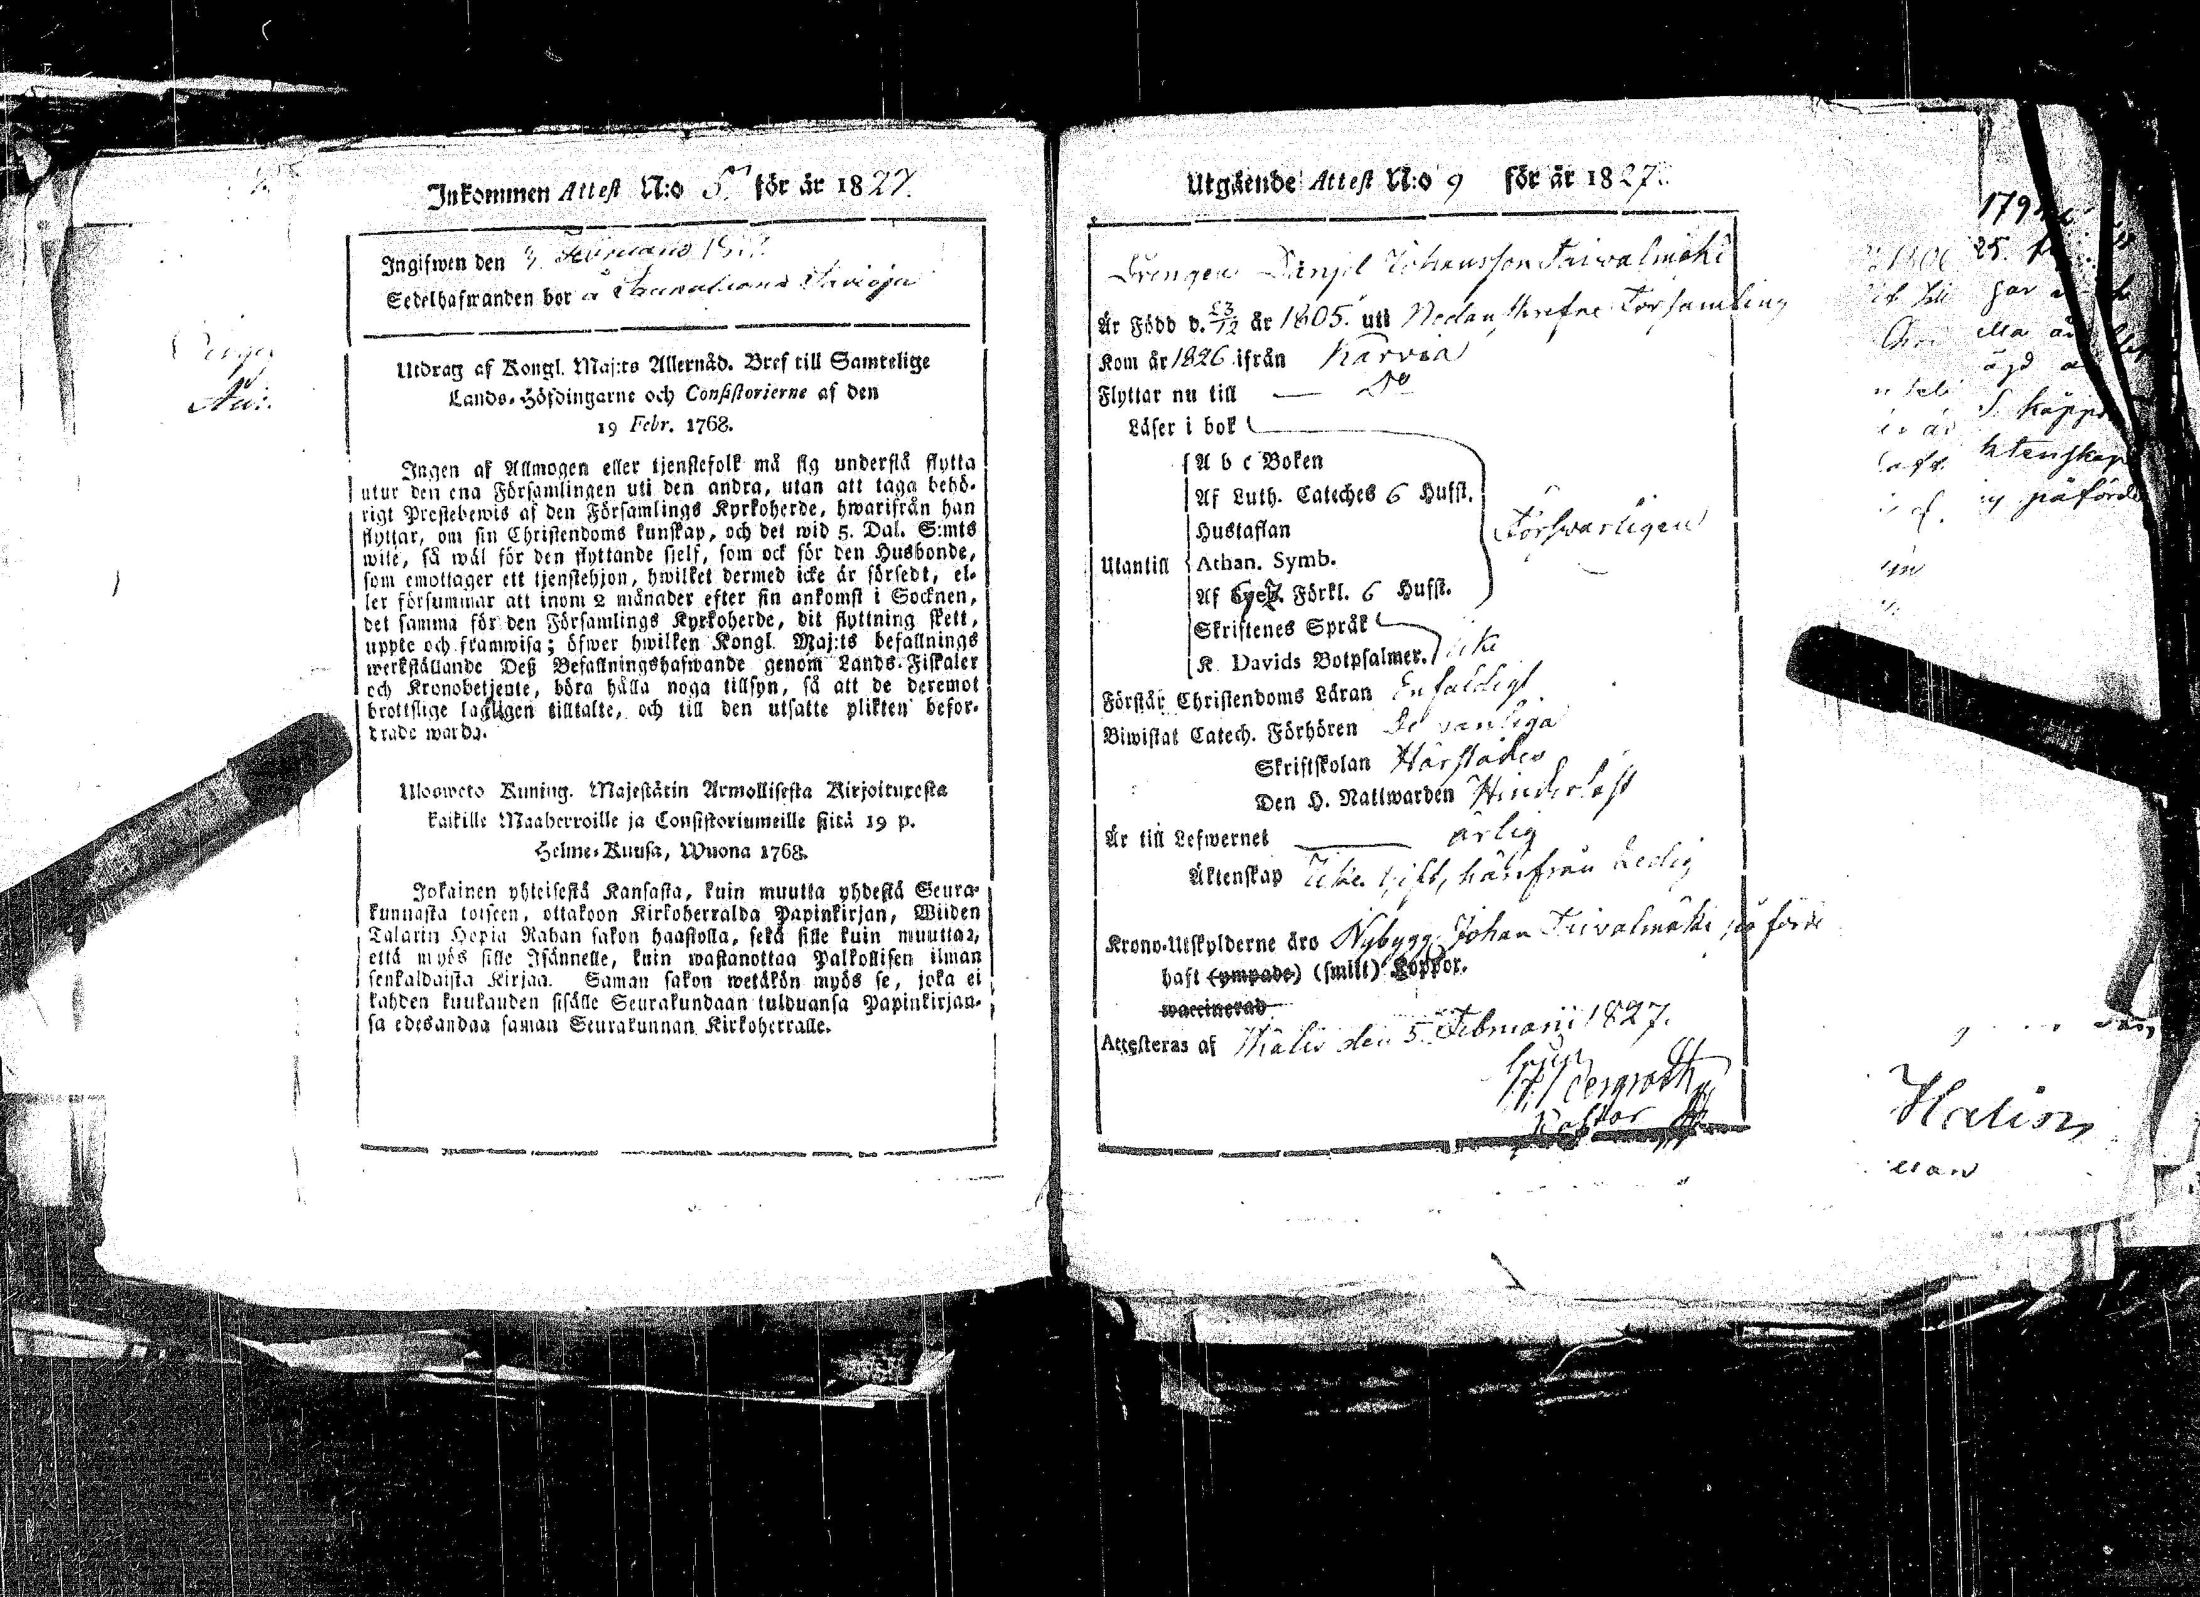 Inkommen Attest N:o 5. för år 1827.
Ingifwen den Februarii
Sedelhafwanden bor å
Utdrag af Kongl. Maj:ts Allernåd. Bref till Samtelige
Lands-Höfdingarne och Consistorierne af den
19 Febr. 1768.
Ingen af Allmogen eller tjenstefolk må sig understå flytta
utur den ena Församlingen uti den andra, utan att taga behö-
rigt Prestebewis af den Församlings Kyrkoherde, hwarifrån han
flyttar, om sin Christendoms kunskap, och det wid 5. Dal. S:mts
wite, så wäl för den flyttande sjelf, som ock för den Husbonde,
som emottager ett tjenstehjon, hwilket dermed icke är försedt, el-
ler försummar att inom 2 månader efter sin ankomst i Socknen,
det samma för den Församlings Kyrkoherde, dit flyttning skett,
uppte och framwisa; öfwer hwilken Kongl. Maj:ts befallnings
werkställande Deß Befallningshafwande genom Lands-Fiskaler
och Kronobetjente, böra hålla noga tillsyn, så att de deremot
brottslige lagligen tilltalte, och till den utsatte plikten befor-
drade warda.
Ulosweto Kuning. Majestätin Armollisesta Kirjoituxesta
kaikille Maaherroille ja Consistoriumeille siitä 19 p.
Helme-Kuusa, Wuona 1768.
Jokainen yhteisestä Kansasta, kuin muutta yhdestä Seura-
kunnasta toiseen, ottakoon Kirkoherralda Papinkirjan, Wiiden
Talarin Hopia Rahan sakon haastolla, sekä sille kuin muuttaa,
että myös sille Isännelle, kuin wastanottaa Palkollisen ilman
senkaldaista Kirjaa. Saman sakon wetäkön myös se, joka ei
kahden kuukauden sisälle Seurakundaan tulduansa Papinkirjan-
sa edesandaa saman Seurakunnan Kirkoherralle.
Utgående Attest N:o 9 för år 1827.
Drengen Danjel Johansson Taivalmäki
Är Född d. 23/12 år 1805. uti Nedanskrefne Församling
Kom år 1826 ifrån Karvia
Flyttar nu till — Do
Läser i bok
A b c Boken
Af Luth. Cateches 6 Hufst.
Hustaflan
Försvarligen
Utantill Athan. Symb.
Af Förkl. 6 Hufst.
Skriftenes Språk
K. Davids Botpsalmer. icke
Förstår Christendoms Läran Enfaldigt
Biwistat Catech. Förhören De vanliga
Skriftskolan Härstädes
Den H. Nattwarden Hinderlöst
Är till Lefwernet — ärlig
Äktenskap Icke gift, härifrån Ledig
Krono-Utskylderne äro Nybygg. Johan Taivalmäki påförde
haft (ympade) (smitt) Koppor.
waccinerad
Attesteras af den 5. Februarii 1827.